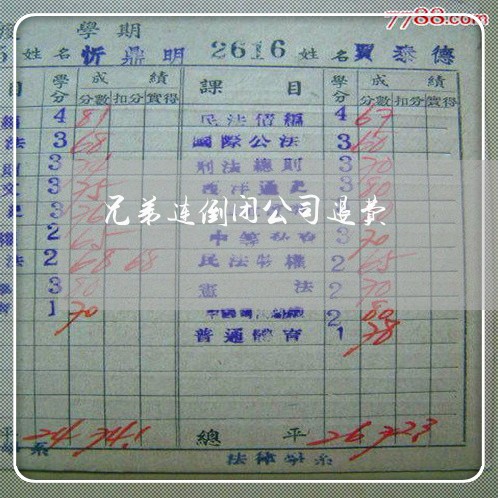 7788.com
學期
姓名 忻鼎明 2616 姓名 賈泰德
目 學分 成績 課目 學分 成績
分數 扣分 實得 分數 扣分 實得
4 81 民法債編 4 67
法 3 68 國際公法 3 60
3 刑法總則 3 70
3 75 西洋通史 3 80
兄弟连倒闭公司退费
2 65 3 70
法 2 68 68 民法物權 2 65
3 80 憲法 2 70
1 70 2 80
普通體育 1 78
平 24 74.1 總平 26 72.3
系 法律學系